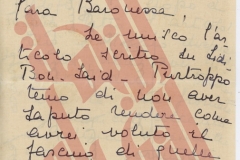 Cara Baronessa,
Le unisco l'ar
ticolo scritto su Sidi
Bou-Said - Purtroppo
temo di non aver
saputo rendere come
avrei voluto il
fascino di quella